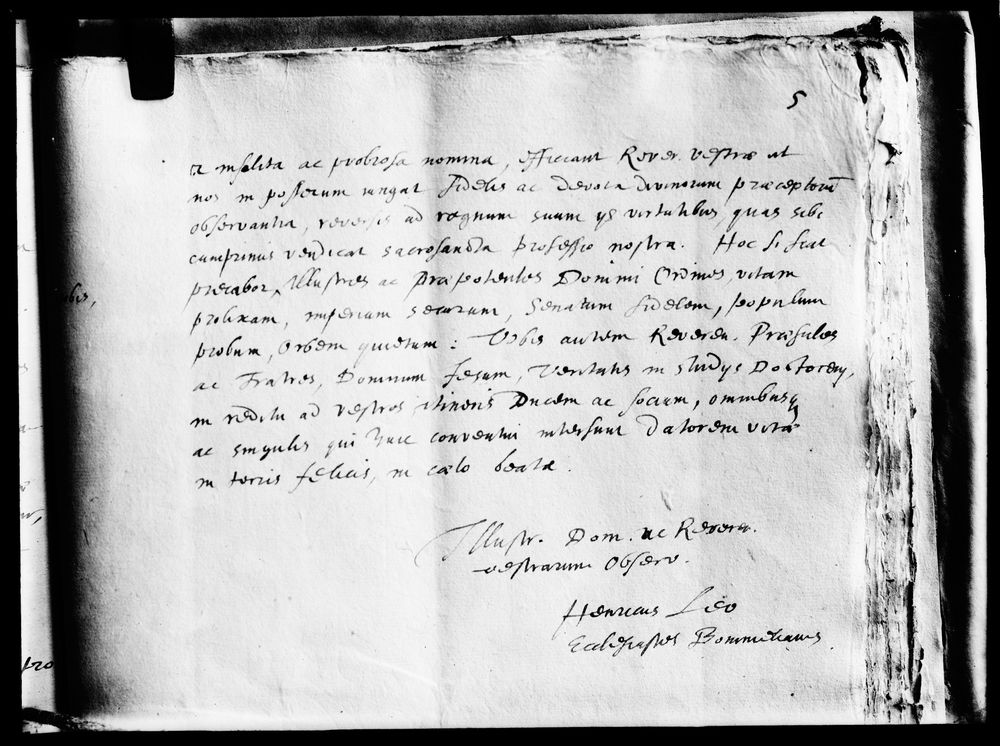 5
& insolita ac probrosa nomina, efficiant Rever. vestræ ut
nos in posterum iungat fidelis ac devota divinorum præceptorū
observantia, reversis ad regnum suum ijs virtutibus, quas sibi
cumprimis vendicat sacrosancta professio nostra. Hoc si fiat
precabor, Illustres ac Præpotentes Domini Ordines, vitam
prolixam, imperium securum, Senatum fidelem, populum
probum, Orbem quietum: Vobis autem Reveren. Præsules
ac Fratres, Dominum Jesum, Veritatis in studijs Doctorem,
in reditu ad vestros itineris Ducem ac socium, omnibusq
ac singulis qui huic conventui intersunt datorem vitæ
in terris felicis, in cælo beatæ.
Illustr. Dom. ac Reveren.
vestrarum Observ.
Henricus Leo
Ecclesiastes Bommelianus.
obis,
pro